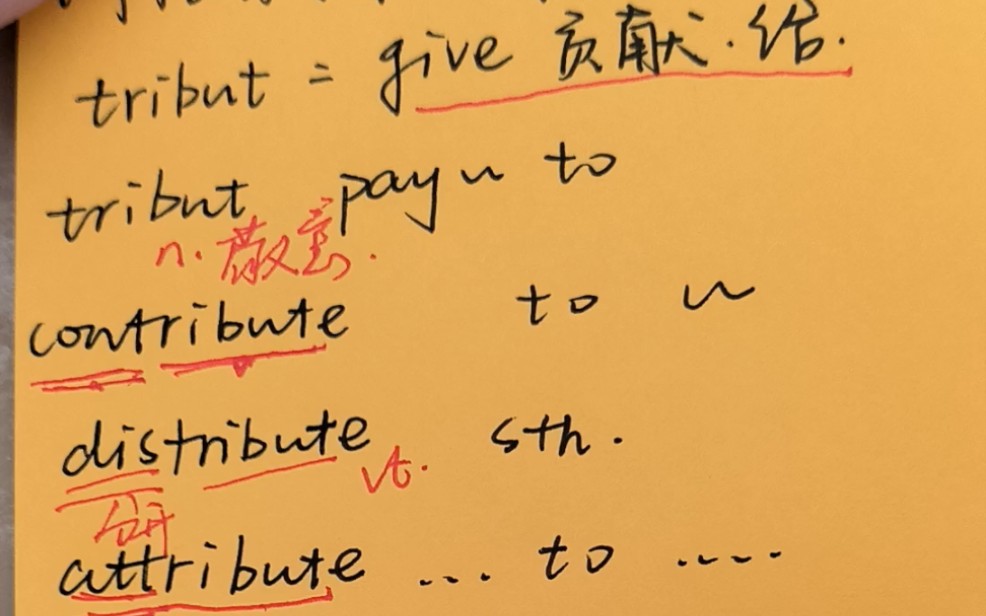 tribut = give 贡献.给.
tribut pay~ to
n.敬意.
contribute to ~
distribute sth.
vt.
分开
attribute ... to ....